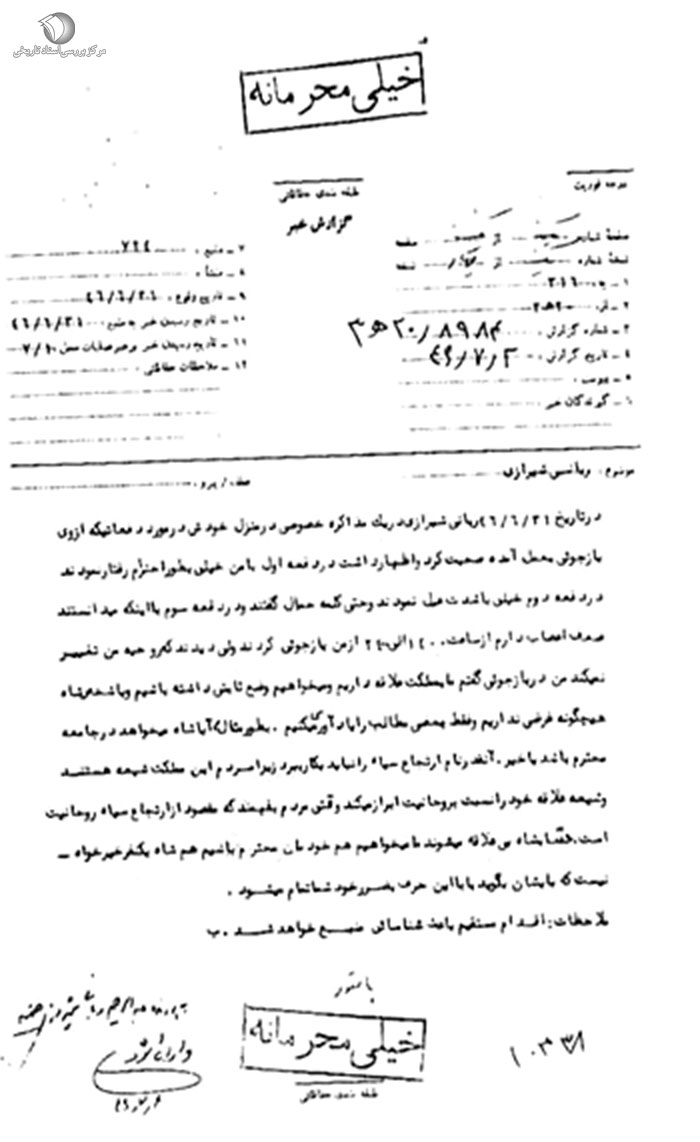 مرکز بررسی اسناد تاریخی
خیلی محرمانه
درجه فوریت
طبقه بندی حفاظتی
گزارش خبر
صفحهٔ شماره از صفحه
نسخهٔ شماره از نسخه
۱ - به ۳۱۶
۲ - از ۲۰ ه ۳
۳ - شماره گزارش ۲۰/۸۹۸۴ ه ۳
۴ - تاریخ گزارش ۴۶/۷/۲
۵ - پیوست
۶ - گیرندگان خبر
۷ - منبع ۷۶۴
۸ - منشأ
۹ - تاریخ وقوع ۴۶/۶/۳۱
۱۰ - تاریخ رسیدن خبر به منبع ۴۶/۶/۳۱
۱۱ - تاریخ رسیدن خبر به رهبر عملیات محل ۷/۱
۱۲ - ملاحظات حفاظتی
موضوع ربانی شیرازی
عطف / پیرو
در تاریخ ۴۶/۶/۳۱ ربانی شیرازی در یک مذاکره خصوصی در منزل خودش در مورد دفعاتیکه از وی
بازجوئی بعمل آمده صحبت کرد و اظهار داشت در دفعه اول با من خیلی بطور احترام رفتار نمودند
در دفعه دوم خیلی باشدت عمل نمودند وحتی کلمه حمال گفتند و در دفعه سوم با اینکه میدانستند
ضعف اعصاب دارم از ساعت ۱۴۰۰ الی ۲۴۰۰ از من بازجوئی کردند ولی دیدند که روحیه من تغییر
نمیکند من در بازجوئی گفتم ما بمملکت علاقه داریم و میخواهیم وضع ثابتی داشته باشیم و باشخص شاه
هیچگونه غرضی نداریم و فقط بعضی مطالب را یادآور میکنیم . بطور مثال آیا شاه میخواهد در جامعه
محترم باشد یا خیر . آنقدر نام ارتجاع سیاه را نباید بکار ببرد زیرا مردم این مملکت شیعه هستند
و شیعه علاقه خود را نسبت بروحانیت ابراز میکند وقتی مردم بفهمند که مقصود از ارتجاع سیاه روحانیت
است بشاه بی علاقه میشوند ما میخواهیم هم خودمان محترم باشیم هم شاه یکنفر خیر خواه -
نیست که بایشان بگوید بابا این حرف بضرر خود شما تمام میشود .
ملاحظات : اقدام مستقیم باعث شناسائی منبع خواهد شد . ب
خیلی محرمانه
طبقه بندی حفاظتی